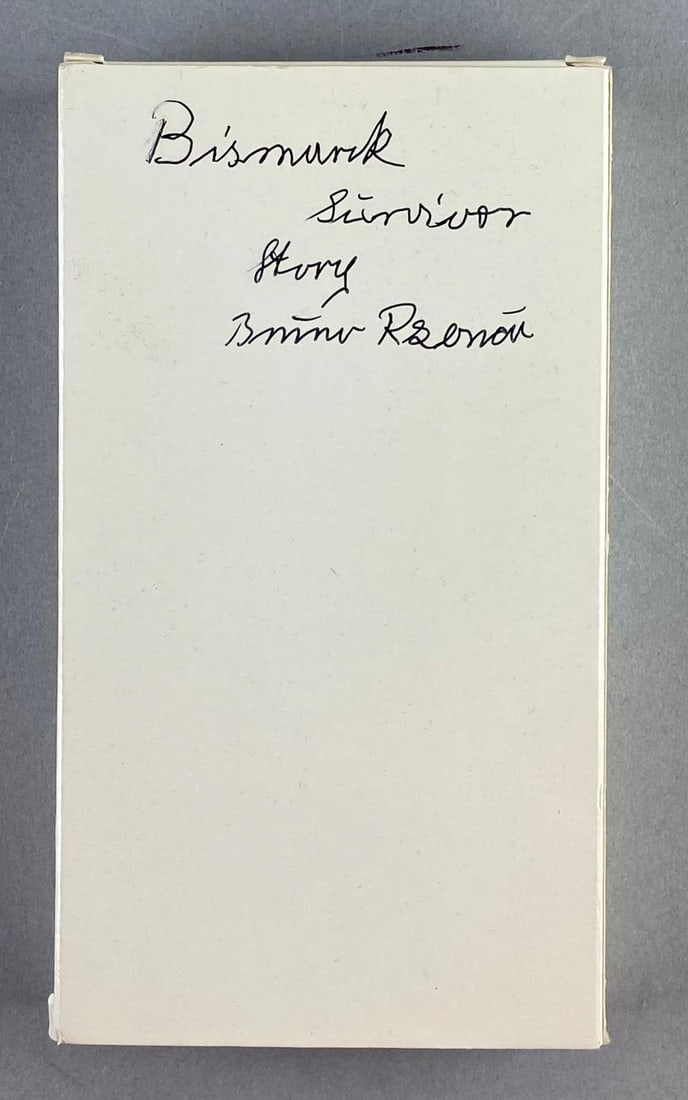 Bismarck
Survivor
Story
Bruno Rzonca